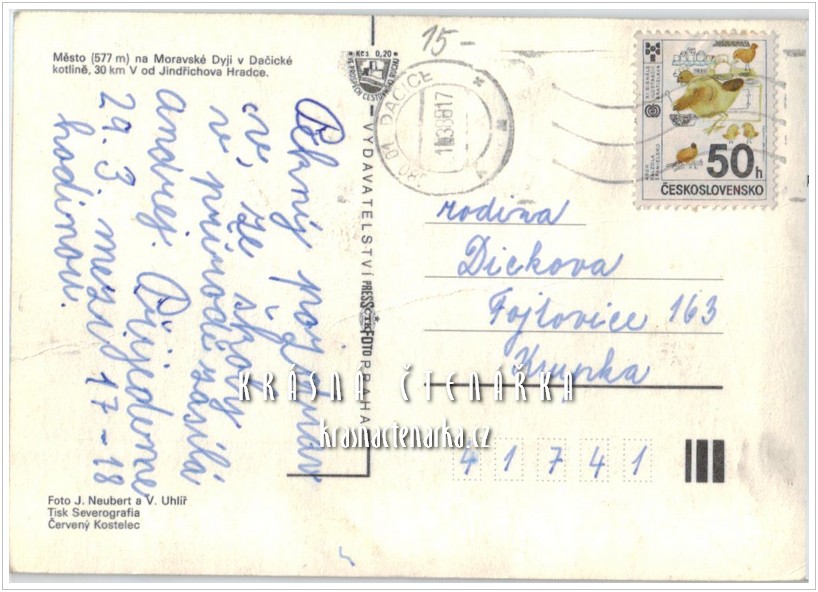 Město (577 m) na Moravské Dyji v Dačické
kotlině, 30 km V od Jindřichova Hradce.
Kčs 0,20
15-
DAČICE
50h
ČESKOSLOVENSKO
Pěkný pozdrav
ze školy
v přírodě zasílá
Andrej. Přijedeme
29. 3. mezi 17-18
hodinou.
VYDAVATELSTVÍ PRESSFOTO PRAHA
rodina
Dickova
Fojtovice 163
Krupka
41741
KRÁSNÁ ČTENÁŘKA
krasnactenarka.cz
Foto J. Neubert a V. Uhlíř
Tisk Severografia
Červený Kostelec